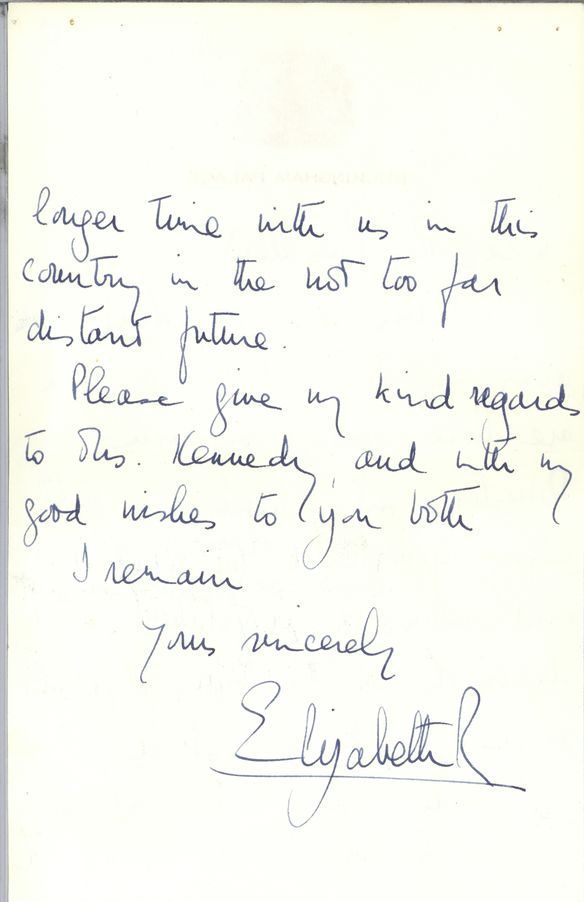 longer time with us in this
country in the not too far
distant future.
Please give my kind regards
to Mrs. Kennedy, and with my
good wishes to you both
I remain
Yours sincerely
Elizabeth R